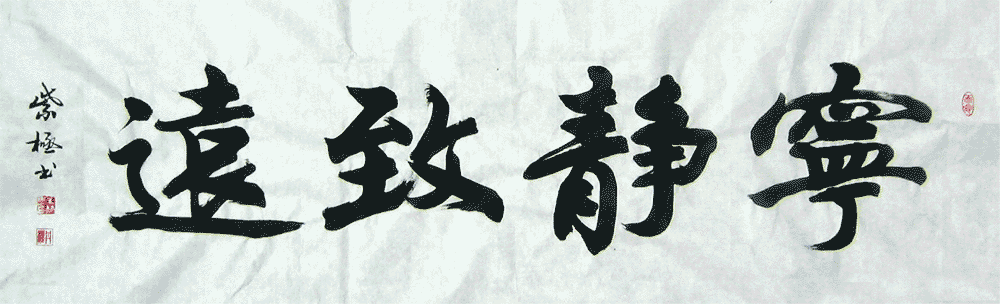 寧靜致遠
紫極书